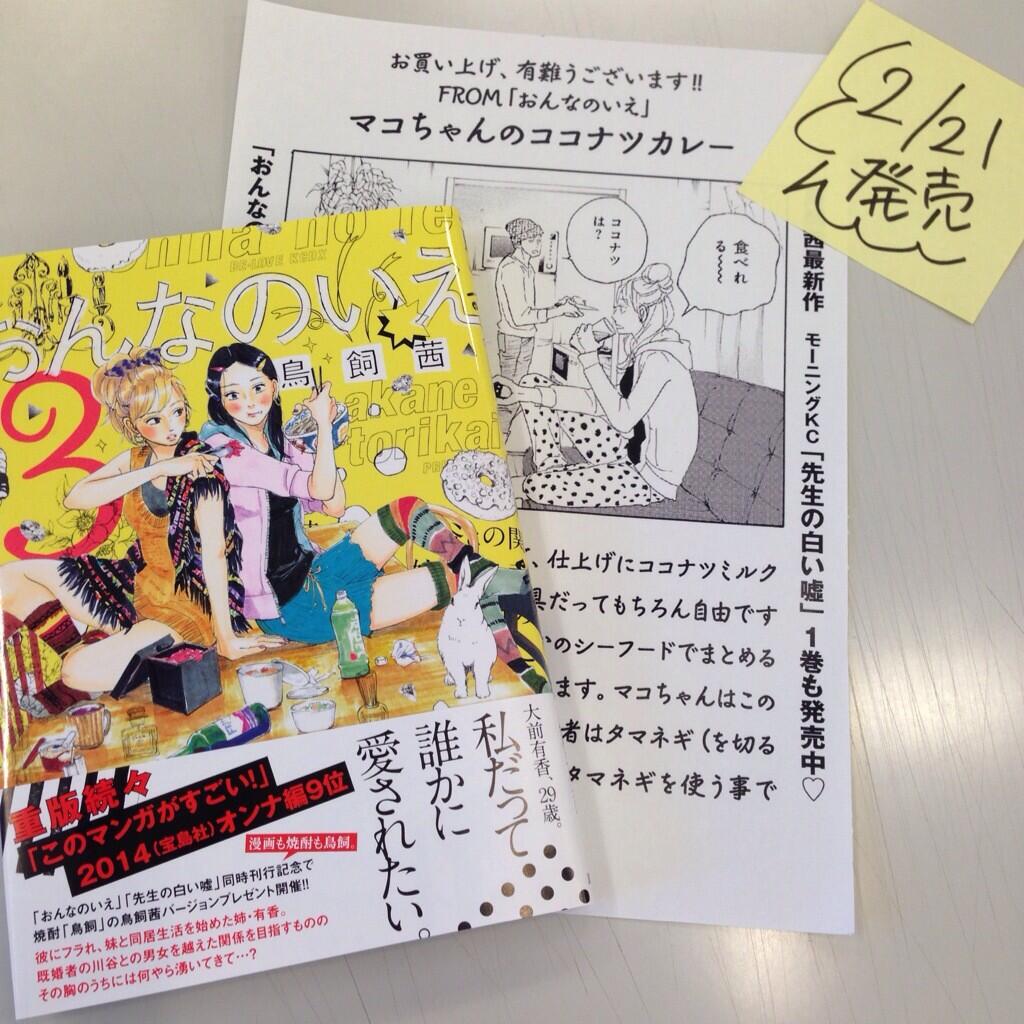 お買い上げ、有難うございます!!
FROM「おんなのいえ」
マコちゃんのココナツカレー
2/21
発売
「おんな
ココナツは?
食べれる〜〜〜
茜最新作 モーニングKC「先生の白い嘘」1巻も発売中♡
、仕上げにココナツミルク
具だってもちろん自由です
のシーフードでまとめる
ます。マコちゃんはこの
者はタマネギ(を切る
タマネギを使う事で
onna no ie
BE・LOVE KCDX
おんなのいえ
3
鳥飼茜
akane
torikai
の関
大前有香、29歳。
私だって
誰かに
愛されたい。
重版続々
「このマンガがすごい!」
2014(宝島社)オンナ編9位
漫画も焼酎も鳥飼。
「おんなのいえ」「先生の白い嘘」同時刊行記念で
焼酎「鳥飼」の鳥飼茜バージョンプレゼント開催!!
彼にフラれ、妹と同居生活を始めた姉・有香。
既婚者の川谷との男女を越えた関係を目指すものの
その胸のうちには何やら湧いてきて…?